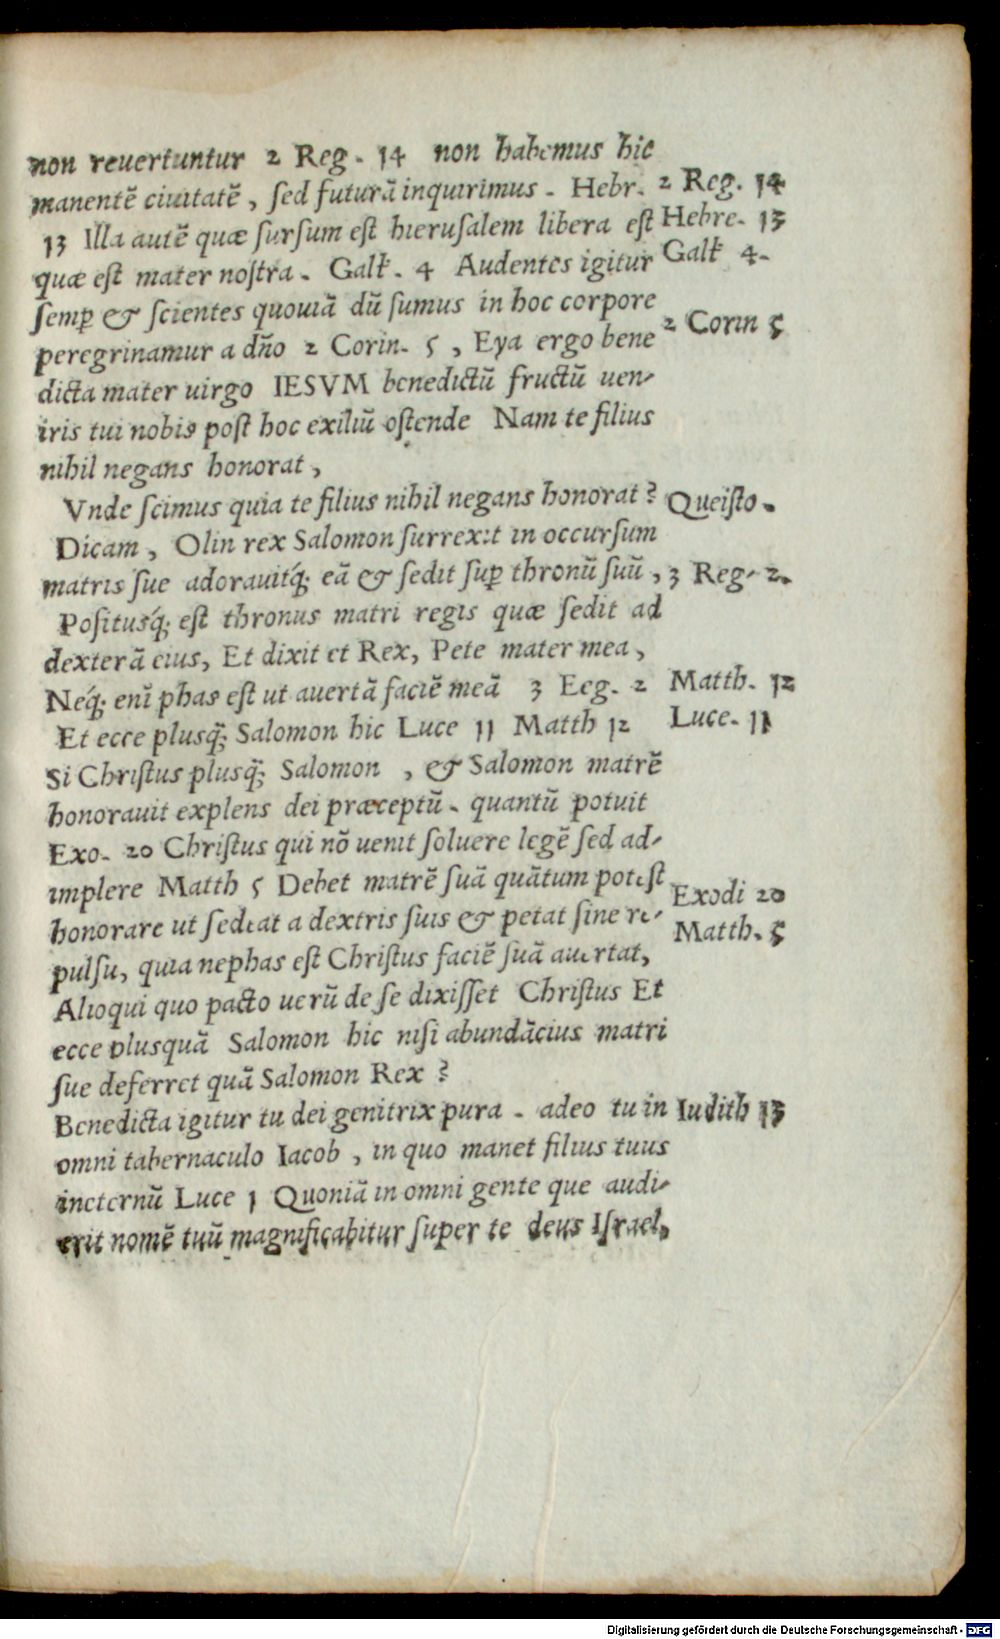 non reuertuntur 2 Reg. 14 non habemus hic
manentē ciuitatē, ſed futurā inquirimus. Hebr. 2 Reg. 14
13 Illa autē quæ ſurſum eſt hieruſalem libera eſt Hebre. 13
quæ eſt mater noſtra. Galt̃. 4 Audentes igitur Galt̃ 4.
ſemꝑ & ſcientes quouiā dū ſumus in hoc corpore
peregrinamur a dño 2 Corin. 5, Eya ergo bene 2 Corin 5
dicta mater uirgo IESVM benedictū fructū uen-
iris tui nobis poſt hoc exiliū oſtende Nam te filius
nihil negans honorat,
Vnde ſcimus quia te filius nihil negans honorat? Queiſto.
Dicam, Olin rex Salomon ſurrexit in occurſum
matris ſue adorauitq́; eā & ſedit ſuꝑ thronū ſuū, 3 Reg. 2.
Poſitusq́; eſt thronus matri regis quæ ſedit ad
dexterā eius, Et dixit et Rex, Pete mater mea,
Neq́; enī phas eſt ut auertā faciē meā 3 Eeg. 2 Matth. 12
Et ecce plusq̃; Salomon hic Luce 11 Matth 12 Luce. 11
Si Chriſtus plusq̃; Salomon , & Salomon matrē
honorauit explens dei præceptū. quantū potuit
Exo. 20 Chriſtus qui nō uenit ſoluere legē ſed ad-
implere Matth 5 Debet matrē ſuā quātum poteſt Exodi 20
honorare ut ſedeat a dextris ſuis & petat ſine re- Matth. 5
pulſu, quia nephas eſt Chriſtus faciē ſuā auertat,
Alioqui quo pacto uerū de ſe dixiſſet Chriſtus Et
ecce plusquā Salomon hic niſi abundācius matri
ſue deferret quā Salomon Rex?
Benedicta igitur tu dei genitrix pura. adeo tu in Iudith 13
omni tabernaculo Iacob, in quo manet filius tuus
ineternū Luce 1 Quoniā in omni gente que audi-
erit nomē tuū magnificabitur ſuper te deus Iſrael,
Digitalisierung gefördert durch die Deutsche Forschungsgemeinschaft - DFG